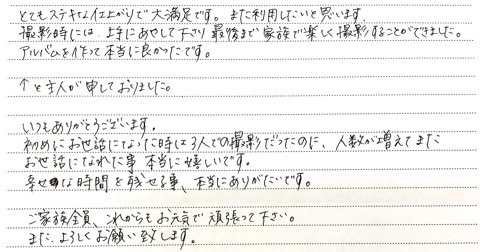 とてもステキな仕上がりで大満足です。また利用したいと思います。
撮影時には、上手にあやして下さり最後まで家族で楽しく撮影することができました。
アルバムを作って本当に良かったです。
↑と主人が申しておりました。
いつもありがとうございます。
初めにお世話になった時は3人での撮影だったのに、人数が増えてまた
お世話になれた事 本当に嬉しいです。
幸せな時間を残せる事、本当にありがたいです。
ご家族全員、これからもお元気で頑張って下さい。
また、よろしくお願い致します。